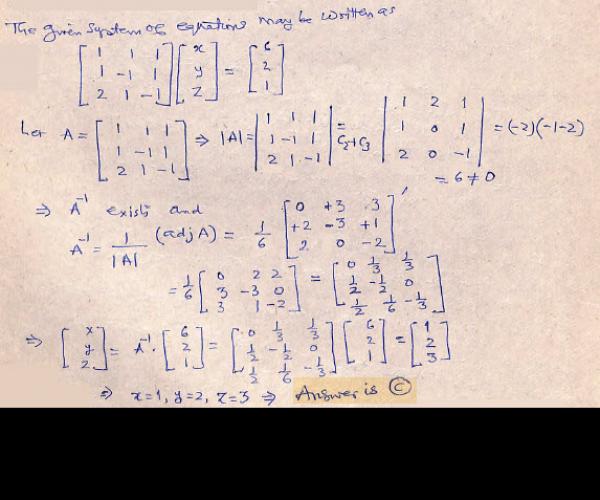 The given system of equations may be written as
[1 1 1; 1 -1 1; 2 1 -1] [x; y; z] = [6; 2; 1]
Let A = [1 1 1; 1 -1 1; 2 1 -1] ⇒ |A| = |1 1 1; 1 -1 1; 2 1 -1| = C₂+C₃ |1 2 1; 1 0 1; 2 0 -1| = (-2)(-1-2)
= 6 ≠ 0
⇒ A⁻¹ exists and
A⁻¹ = 1/|A| (adj A) = 1/6 [0 +3 3; +2 -3 +1; 2 0 -2]′
= 1/6 [0 2 2; 3 -3 0; 3 1 -2] = [0 1/3 1/3; 1/2 -1/2 0; 1/2 1/6 -1/3]
⇒ [x; y; z] = A⁻¹ · [6; 2; 1] = [0 1/3 1/3; 1/2 -1/2 0; 1/2 1/6 -1/3] [6; 2; 1] = [1; 2; 3]
⇒ x=1, y=2, z=3 ⇒ Answer is Ⓒ